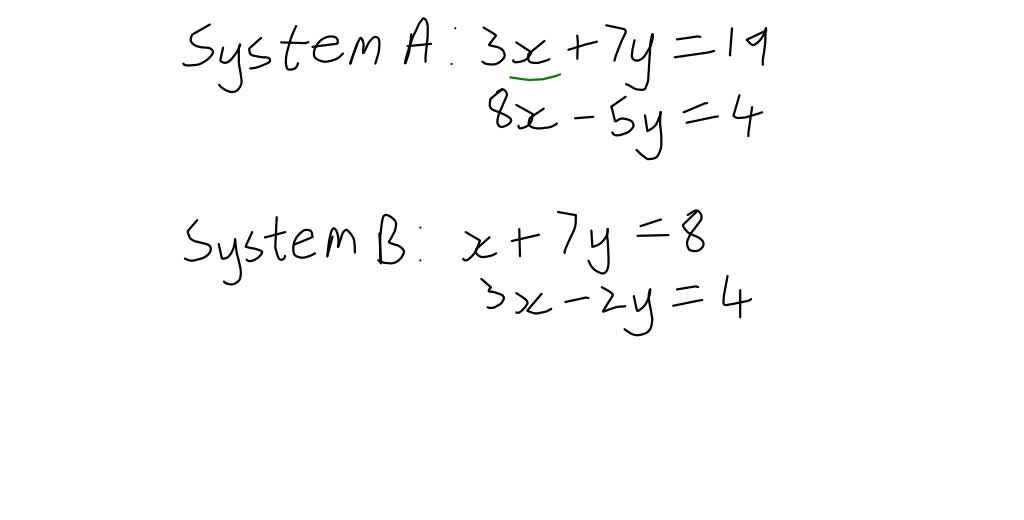 System A: 3x + 7y = 19
8x - 5y = 4
System B: x + 7y = 8
3x - 2y = 4